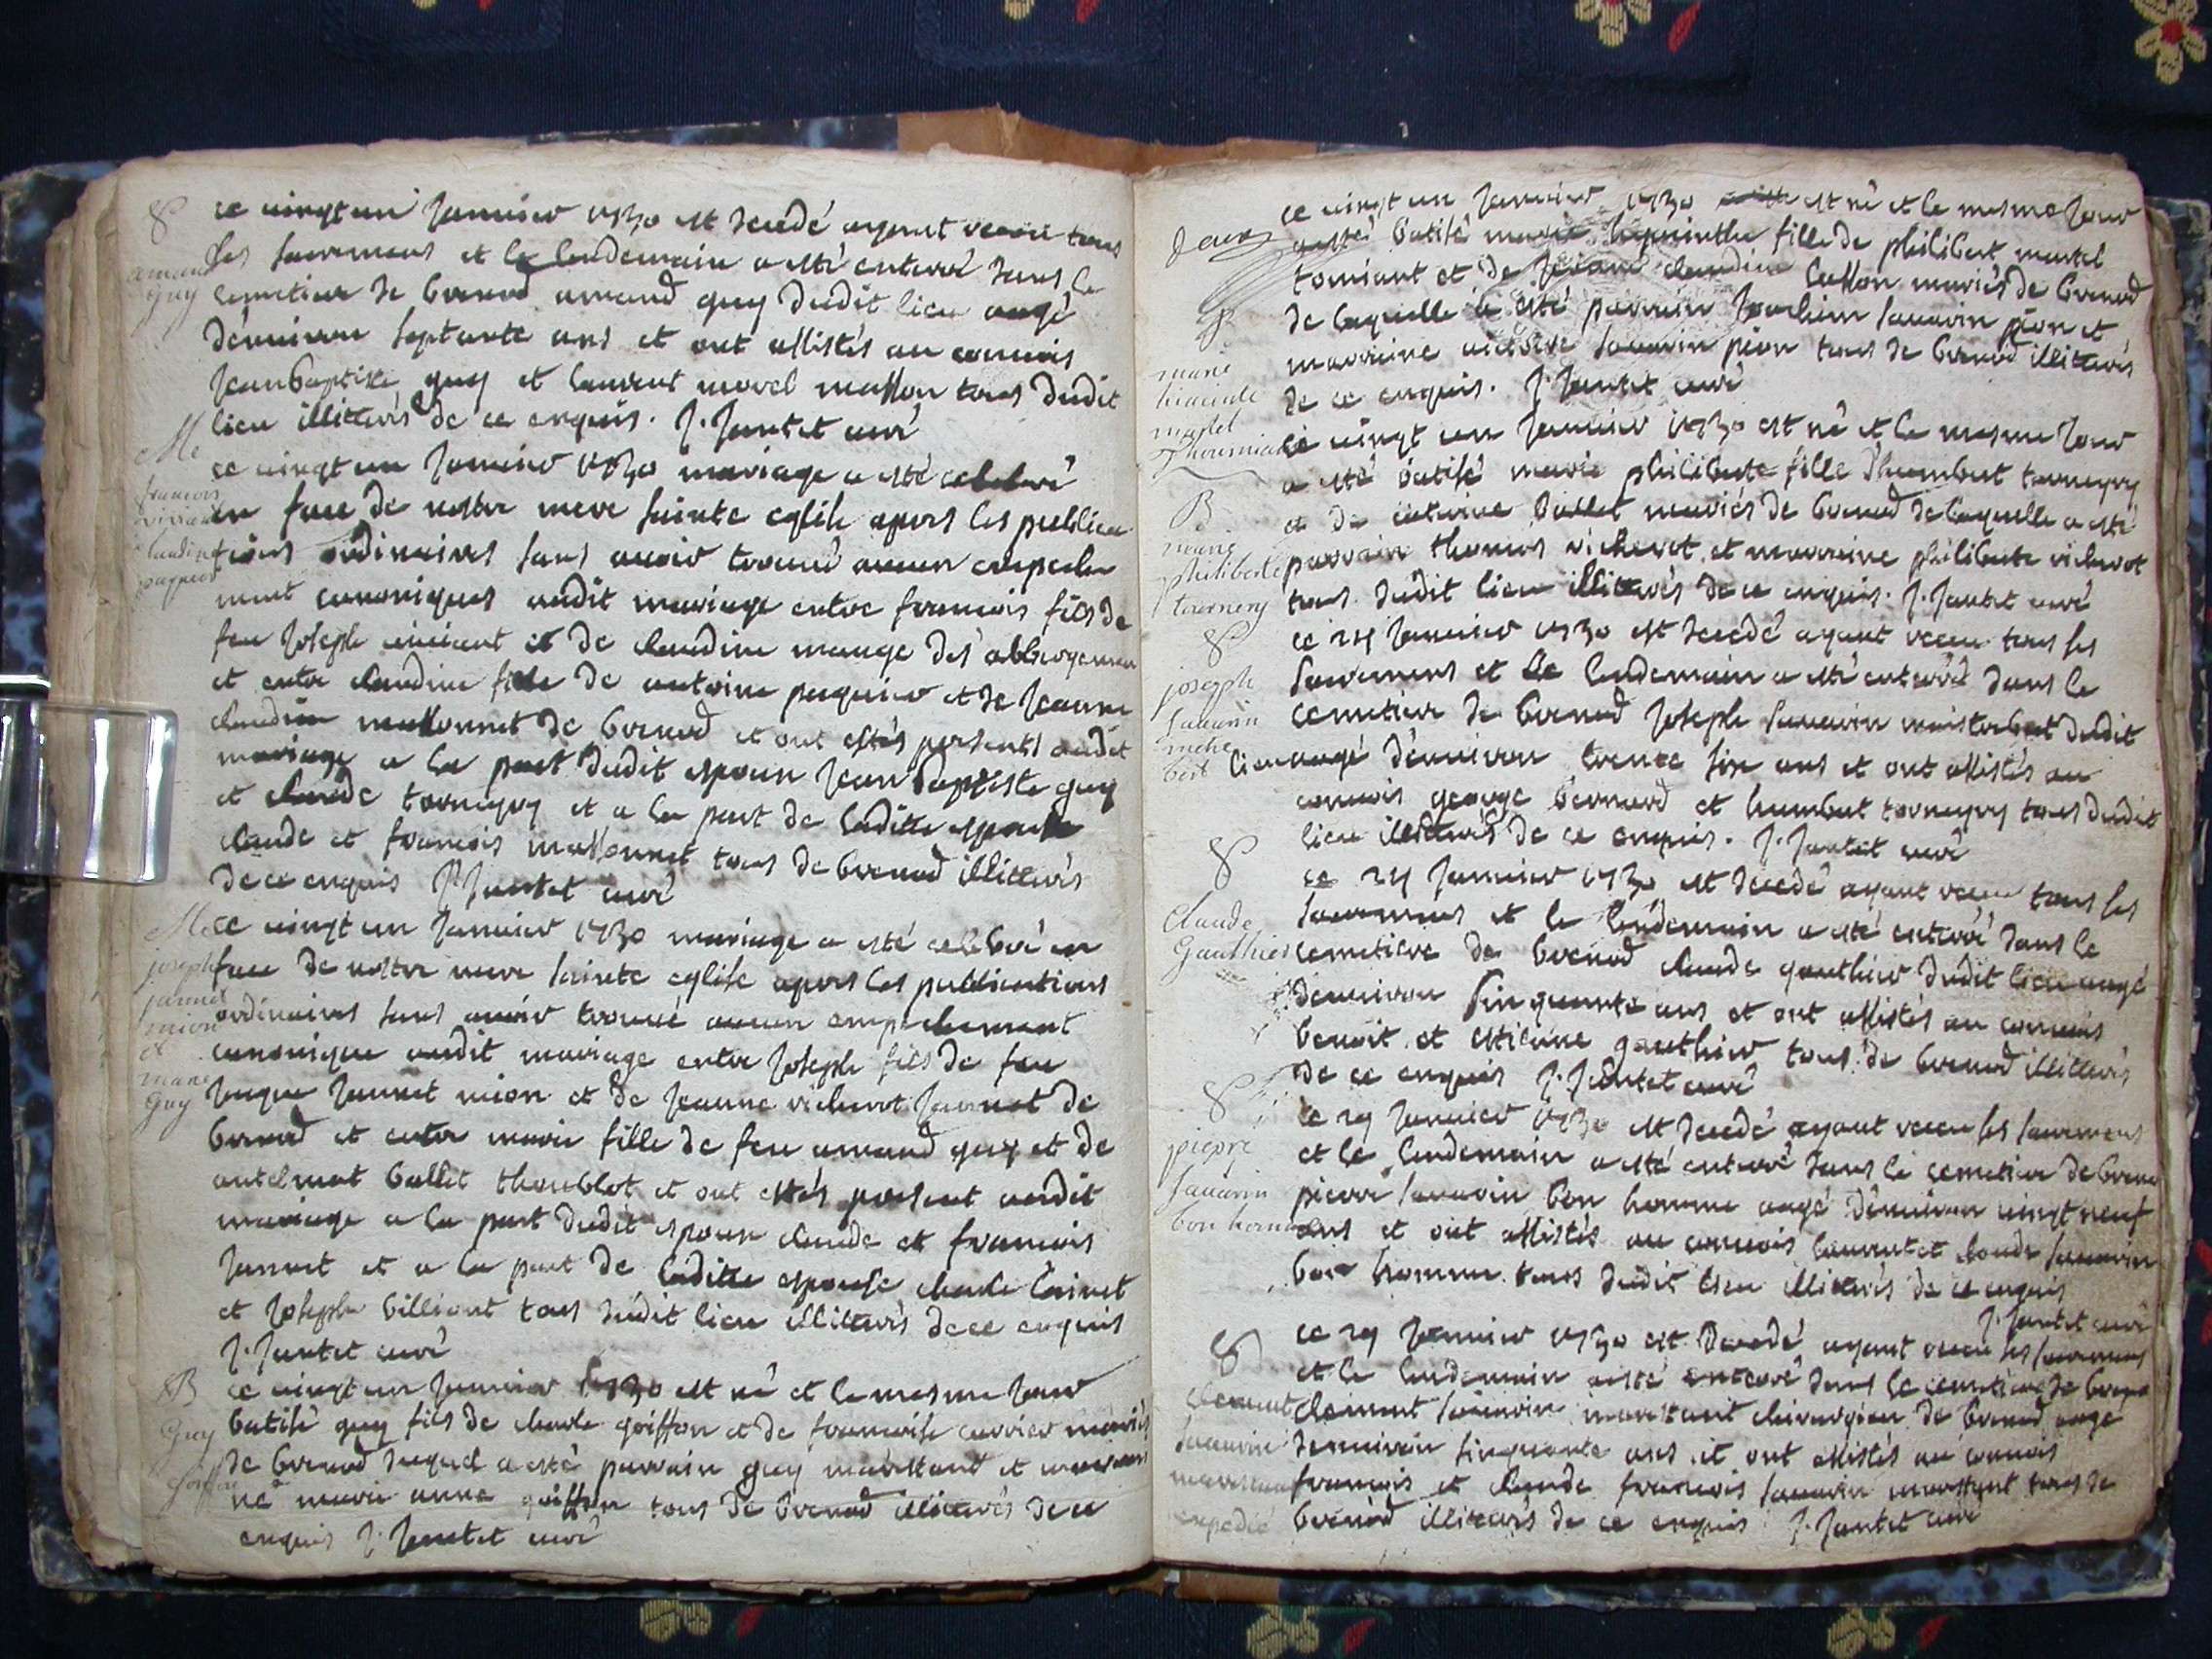 ce vingt un Janvier 1730 est decedé ayant receu tous
les sacremens et le lendemain a esté enterré dans le
amand
guy
cemetiere de brenod amand guy dudit lieu aagé
d'environ septante ans et ont assistés au convois
Jean baptiste guy et laurent morel masson tous dudit
lieu illiterés de ce enquis. J. Jantet curé
M
ce vingt un Janvier 1730 mariage a esté celebré
francois
viviant
claudine
paquier
en face de nostre mere sainte eglise apres les publica
tions ordinaires sans avoir trouvé aucun empeche
ment canoniques audit mariage entre francois fils de
feu Joseph viviant et de claudine mange des abbergemen
et entre claudine fille de antoine paquier et de Jeanne
claudine massonnet de brenod et ont estés presents audit
mariage a la part dudit espoux Jean baptiste guy
et claude torneyry et a la part de laditte espouse
claude et francois massonnet tous de brenod illiterés
de ce enquis J. Jantet curé
M
ce vingt un Janvier 1730 mariage a esté celebré en
joseph
jannet
mion
et
marie
Guy
face de nostre mere sainte eglise apres les publications
ordinaires sans avoir trouvé aucun empechement
canonique audit mariage entre Joseph fils de feu
Jaque Jannet mion et de Jeanne richerot Jannet de
brenod et entre marie fille de feu amand guy et de
antelmat ballet thoublot et ont estés present audit
mariage a la part dudit espoux claude et francois
Jannet et a la part de laditte espouse claude
et Joseph billiont tous dudit lieu illiterés de ce enquis
J. Jantet curé
B
Guy
Goiffon
ce vingt un Janvier 1730 est né et le mesme Jour
batisé guy fils de charle goiffon et de francoise carrier mariés
de brenod duquel a esté parrain guy marestant et marrai
ne marie anne goiffon tous de brenod illiterés de ce
enquis J. Jantet curé
ce vingt un Janvier 1730 est né et le mesme Jour
a esté batisé marie hyacinthe fille de philibert martel
torniant et de Jeanne claudine masson mariés de brenod
de laquelle a esté parrain Joachim savarin pion et
marraine savarin pion tous de brenod illiterés
de ce enquis. J. Jantet curé
marie
hiacinte
martel
ce vingt un Janvier 1730 est né et le mesme Jour
a esté batisé marie philiberte fille d'humbert torneyry
et de caterine ballet mariés de brenod de laquelle a esté
B
marie
philiberte
tournery
parrain thomas richerot et marraine philiberte richerot
tous dudit lieu illiterés de ce enquis. J. Jantet curé
ce 24 Janvier 1730 est decedé ayant receu tous les
sacremens et le lendemain a esté enterré dans le
joseph
savarin
metre
bert
cemetiere de brenod Joseph savarin maistre bert dudit
lieu aagé d'environ trente six ans et ont assistés au
convois george bernard et humbert torneyry tous dudit
lieu illiterés de ce enquis. J. Jantet curé
ce 24 Janvier 1730 est decedé ayant receu tous les
sacremens et le lendemain a esté enterré dans le
Claude
Gauthier
cemetiere de brenod claude gauthier dudit lieu aagé
d'environ sinquante ans et ont assistés au convois
benoit et estienne gauthier tous de brenod illiterés
de ce enquis J. Jantet curé
ce 29 Janvier 1730 est decedé ayant receu les sacremens
et le lendemain a esté enterré dans le cemetiere de brenod
pierre
savarin
bon homme
pierre savarin bon homme aagé d'environ vingt neuf
ans et ont assistés au convois laurent et claude savarin
bon homme tous dudit lieu illiterés de ce enquis
J. Jantet curé
ce 29 Janvier 1730 est decedé ayant receu les sacremens
et le lendemain a esté enterré dans le cemetiere de brenod
clement
savarin
marestant
expedié
clement savarin marestant chirurgien de brenod aagé
d'environ sinquante ans et ont assistés au convois
francois et claude francois savarin marestant tous de
brenod illiterés de ce enquis J. Jantet curé